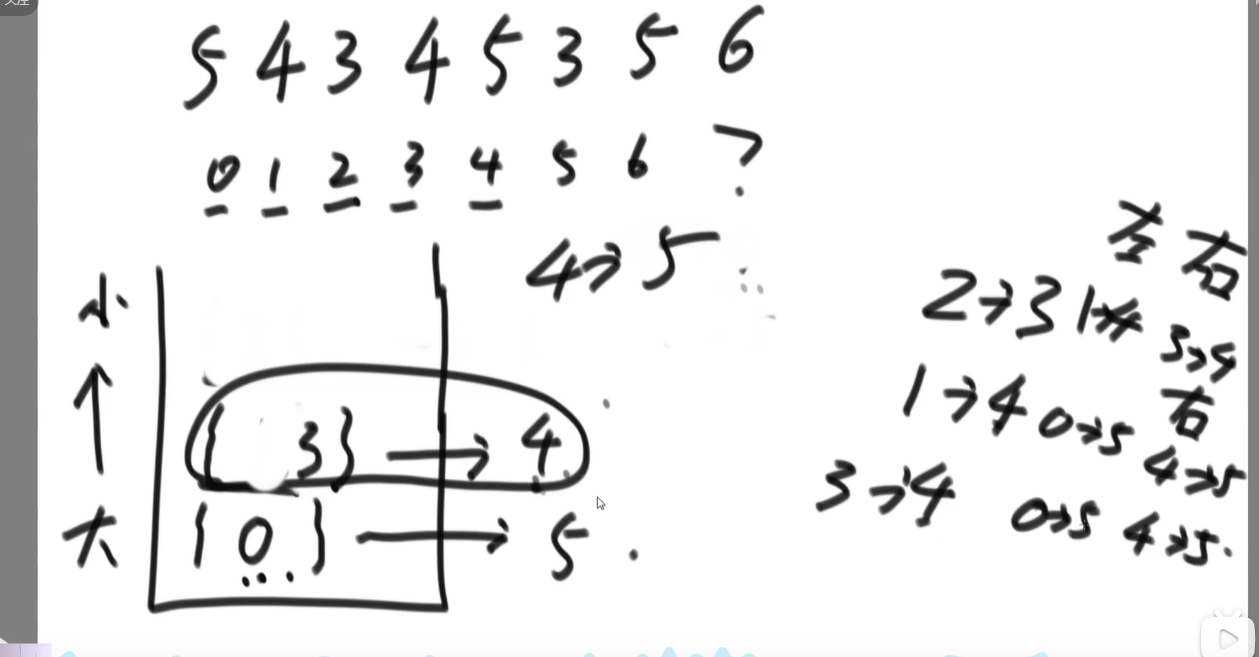 5 4 3 4 5 3 5 6
0 1 2 3 4 5 6 7
4→5
小
↑
大
{ 3} → 4
{ 0 } → 5
左 右
2→3 1 3→4
1→4 0→5 右 4→5
3→4 0→5 4→5